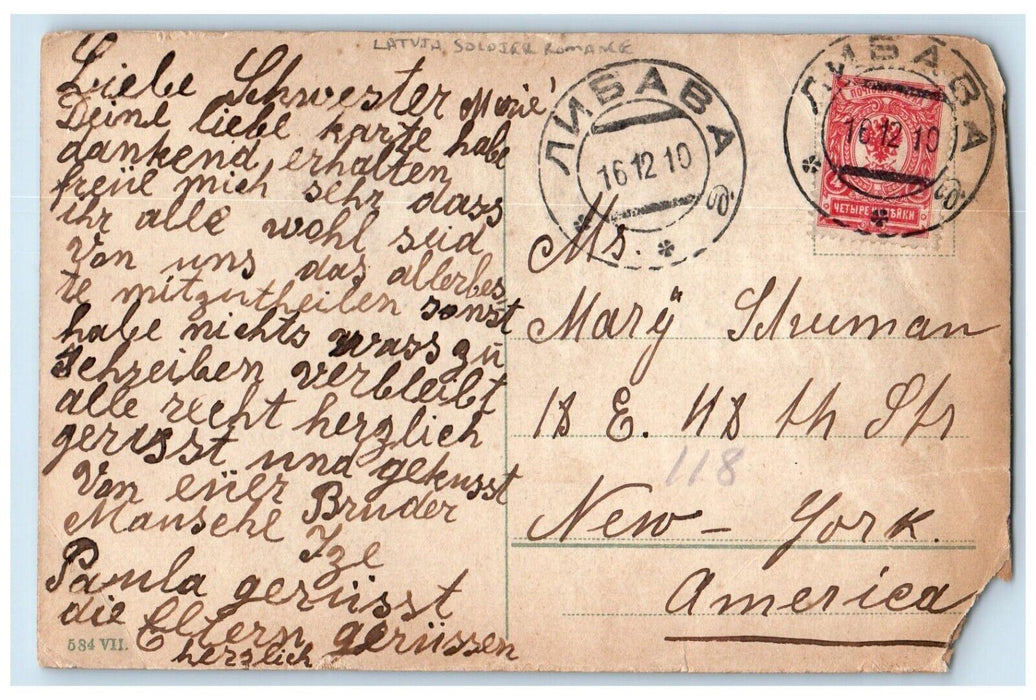 LATVIA, SOLDIER ROMANCE
Liebe Schwester Marie!
Deine liebe karte habe
dankend erhalten
freüe mich sehr dass
ihr alle wohl seid
Von uns das allerbes
te mitzutheilen sonst
habe nichts wass zu
schreiben verbleibt
alle recht herzlich
gerüsst und gekusst
Von eüer Bruder
Mausche Ize
Paula gerüsst
die Eltern gerüssen
herzlich
584 VII.
ЛИБАВА
16 12 10
ЛИБАВА
16 12 10
4
ЧЕТЫРЕ КОПѢЙКИ
Ms.
Marÿ Schuman
18 E. 118 th Str
118
New-York.
America